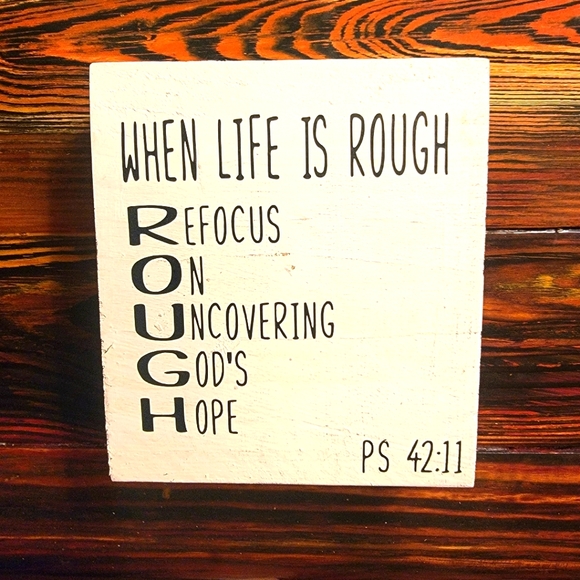 WHEN LIFE IS ROUGH
REFOCUS
ON
UNCOVERING
GOD'S
HOPE
PS 42:11